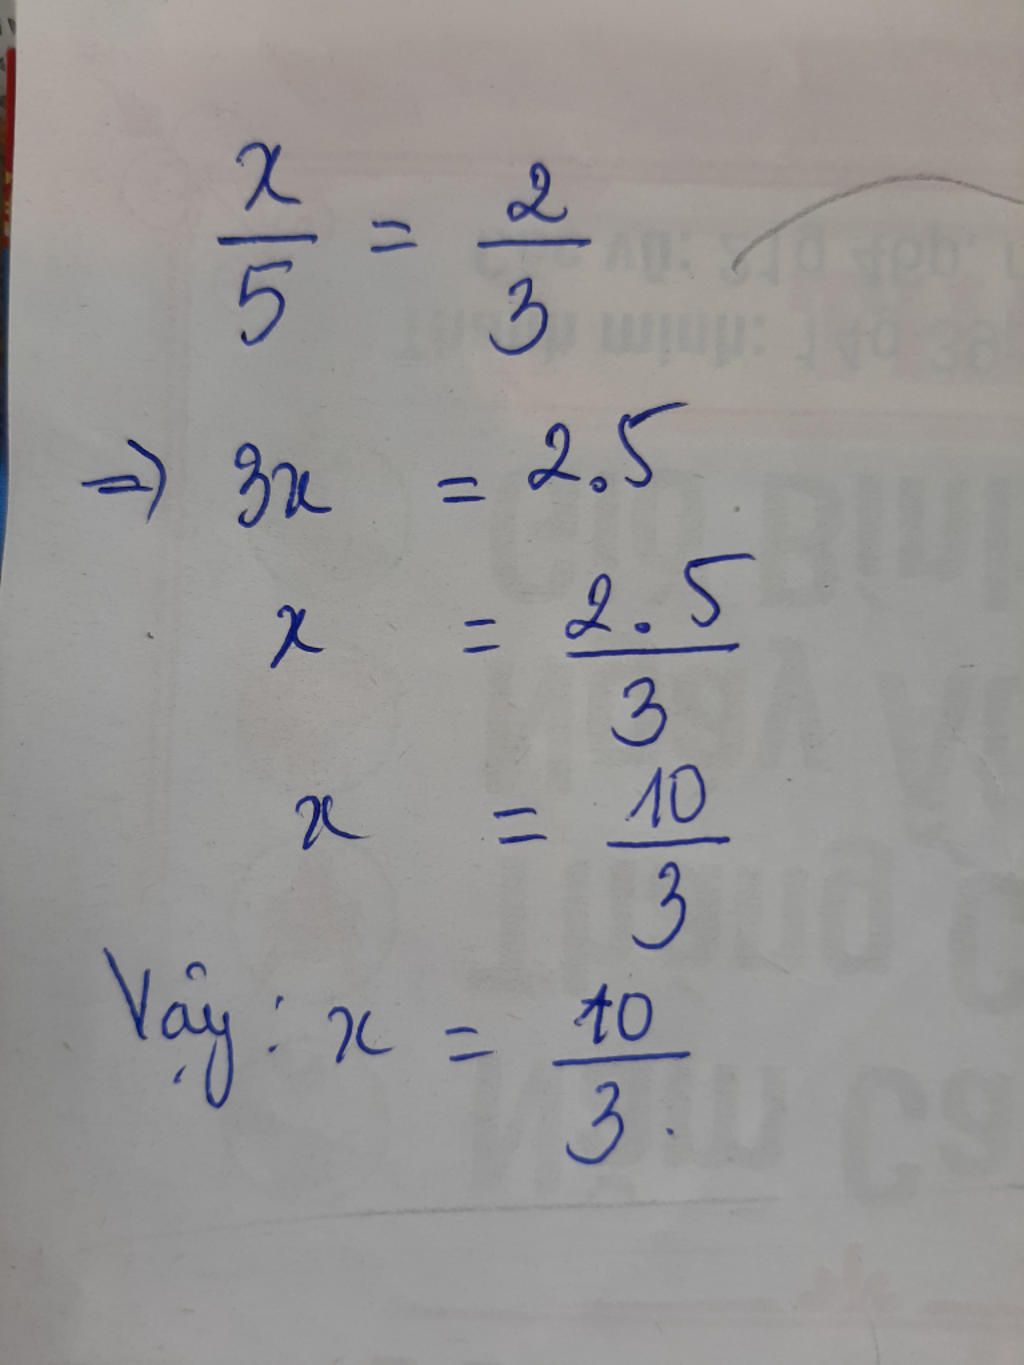 x/5 = 2/3
=> 3x = 2.5
x = 2.5/3
x = 10/3
Vậy: x = 10/3.